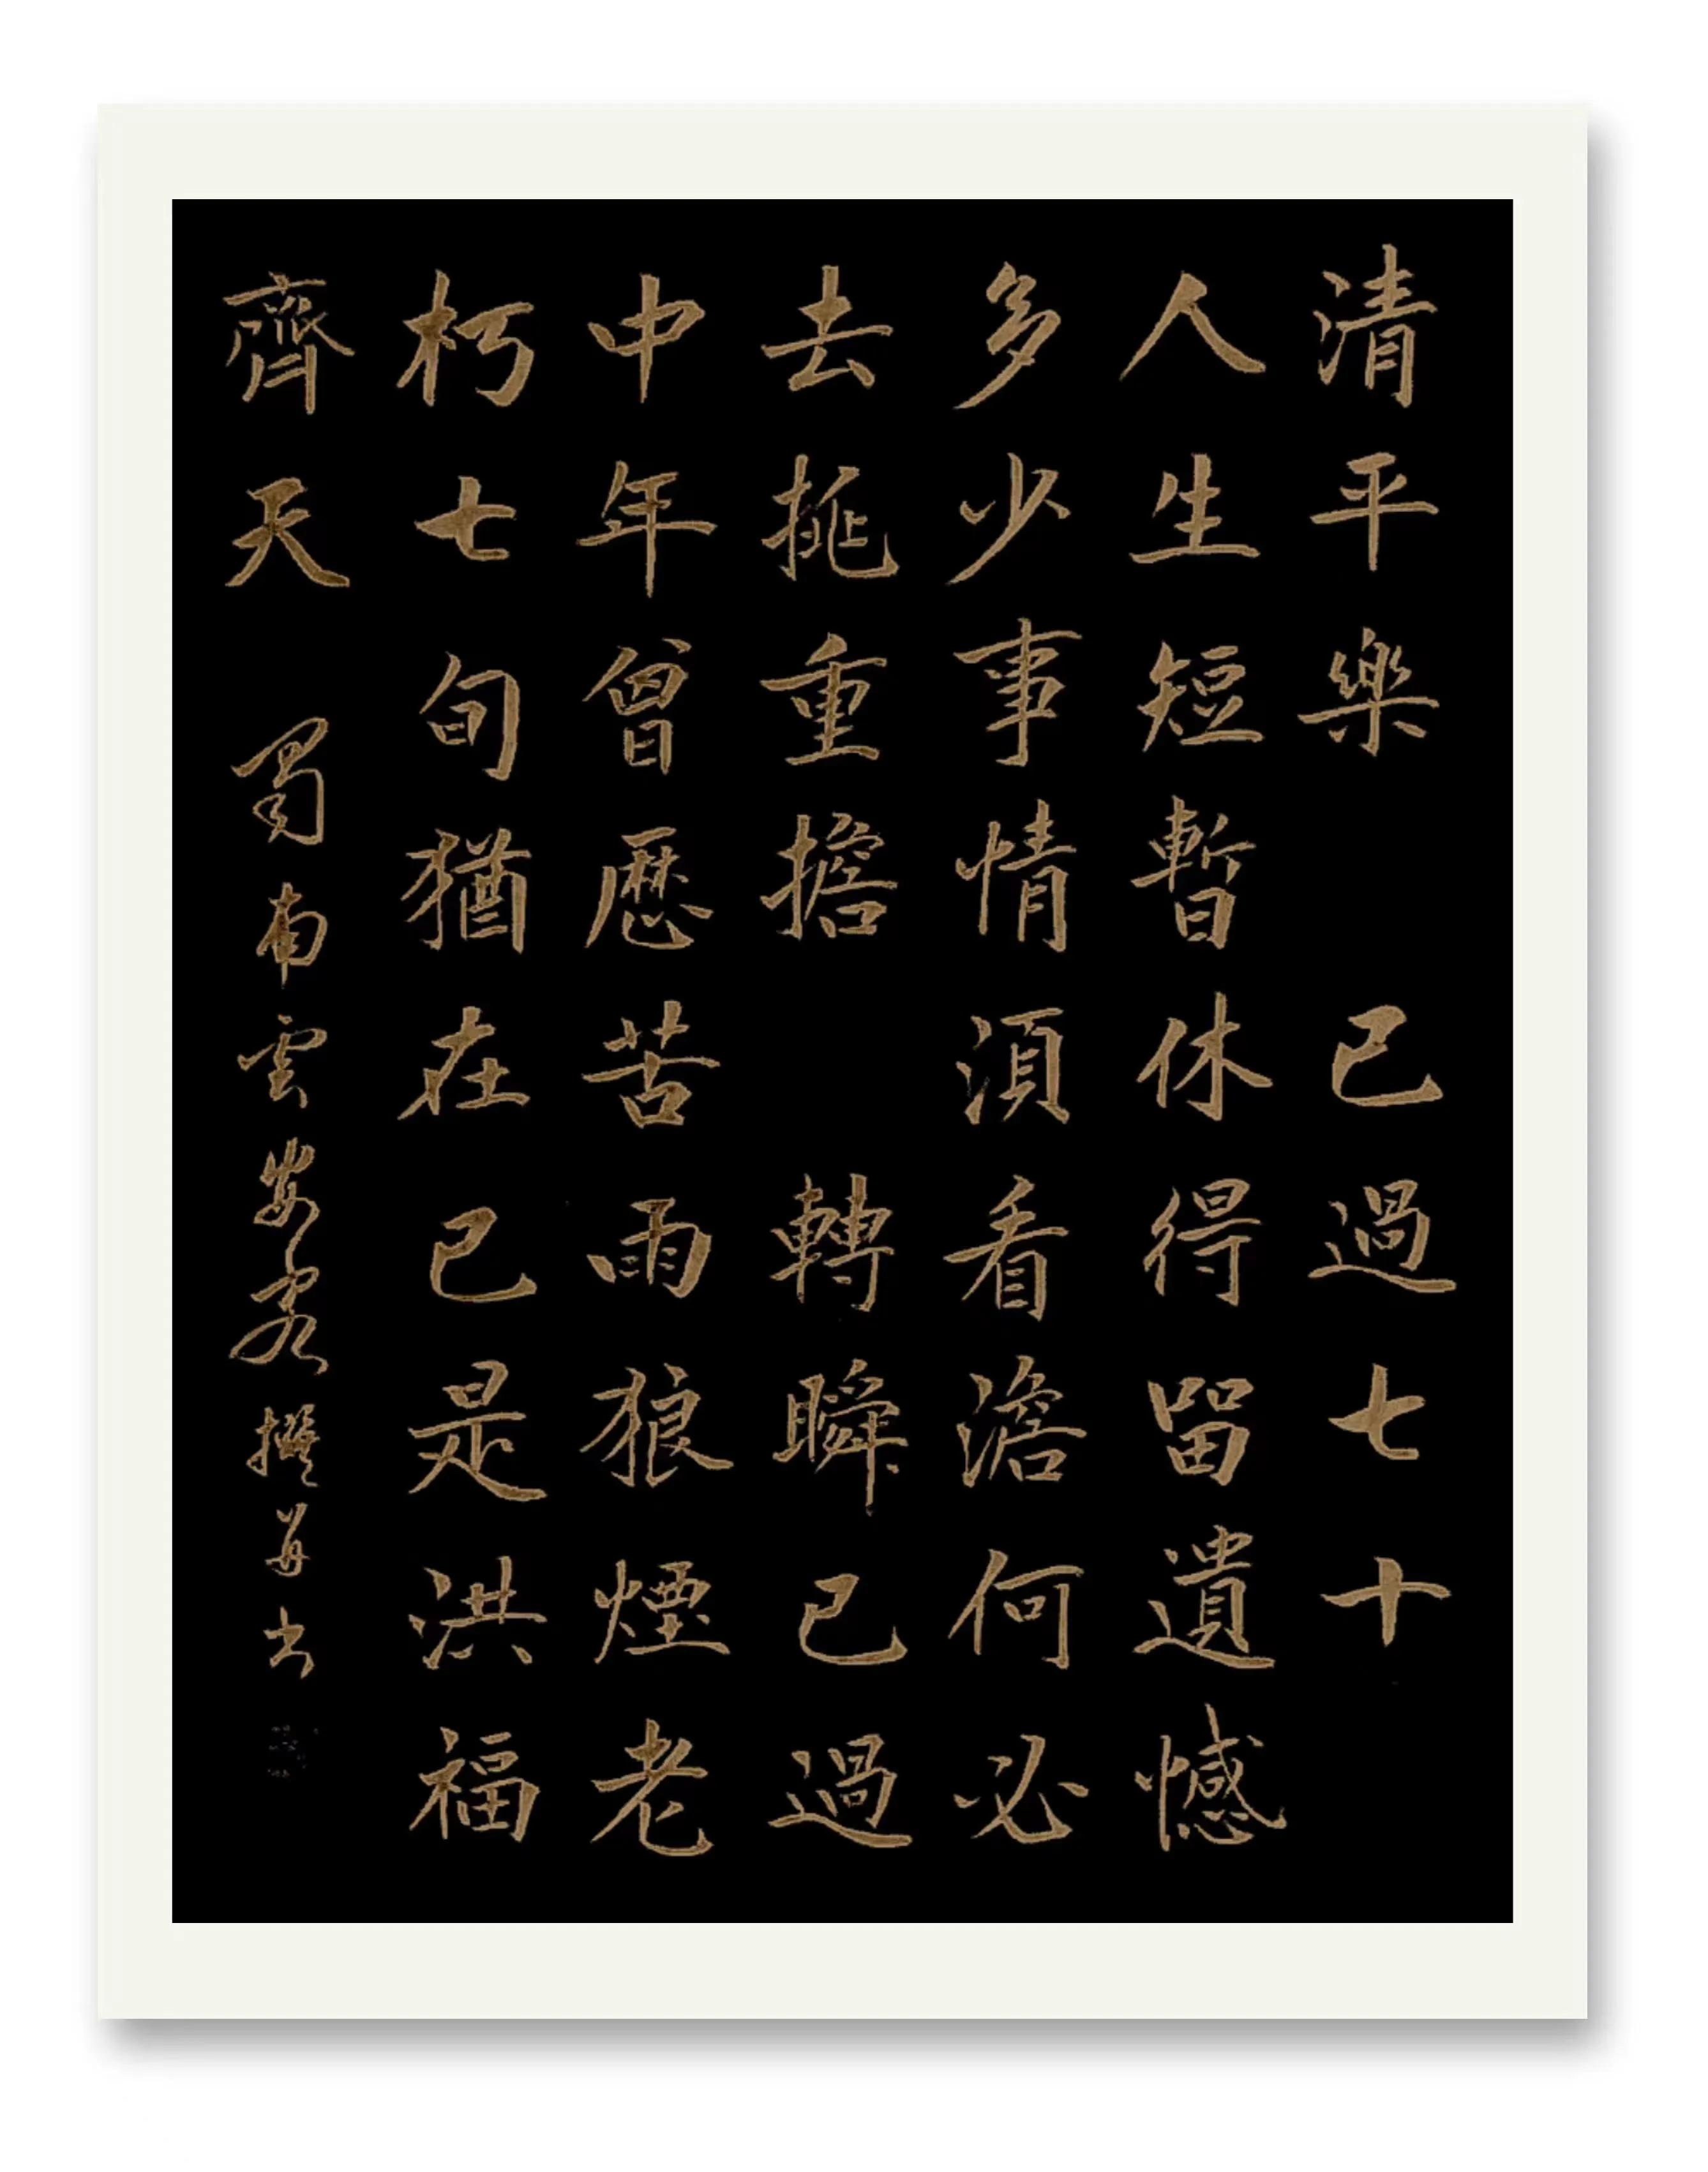 清平樂 已過七十
人生短暫休得留遺憾
多少事情須看澹何必
去挑重擔 轉瞬已過
中年曾歷苦雨狼煙老
朽七旬猶在已是洪福
齊天 蜀南雲安客撰並書